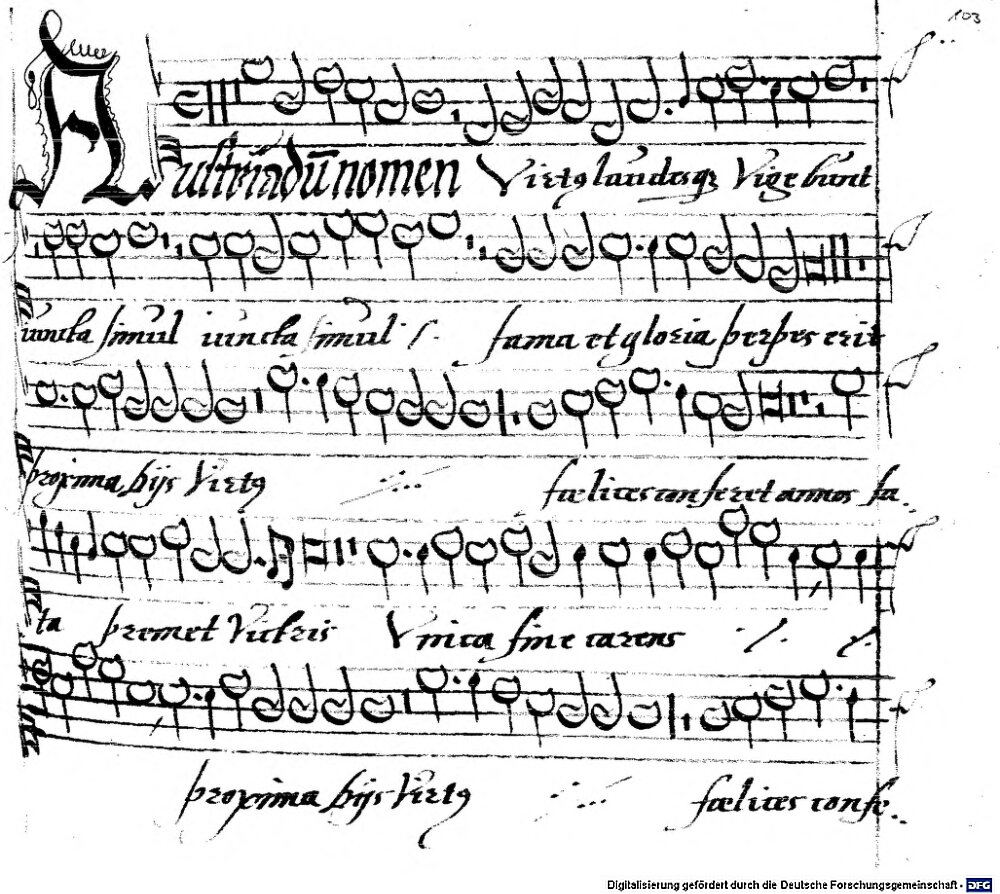 103
Austriadū nomen Virtꝰ laudesqꝫ Vigebunt
iuncta simul iuncta simul
fama et gloria perpes erit
proxima hijs Virtꝰ
fœlices conferet annos fa
ta premet Victris Vnica sine carens
proxima hijs Virtꝰ fœlices confe
Digitalisierung gefördert durch die Deutsche Forschungsgemeinschaft - DFG